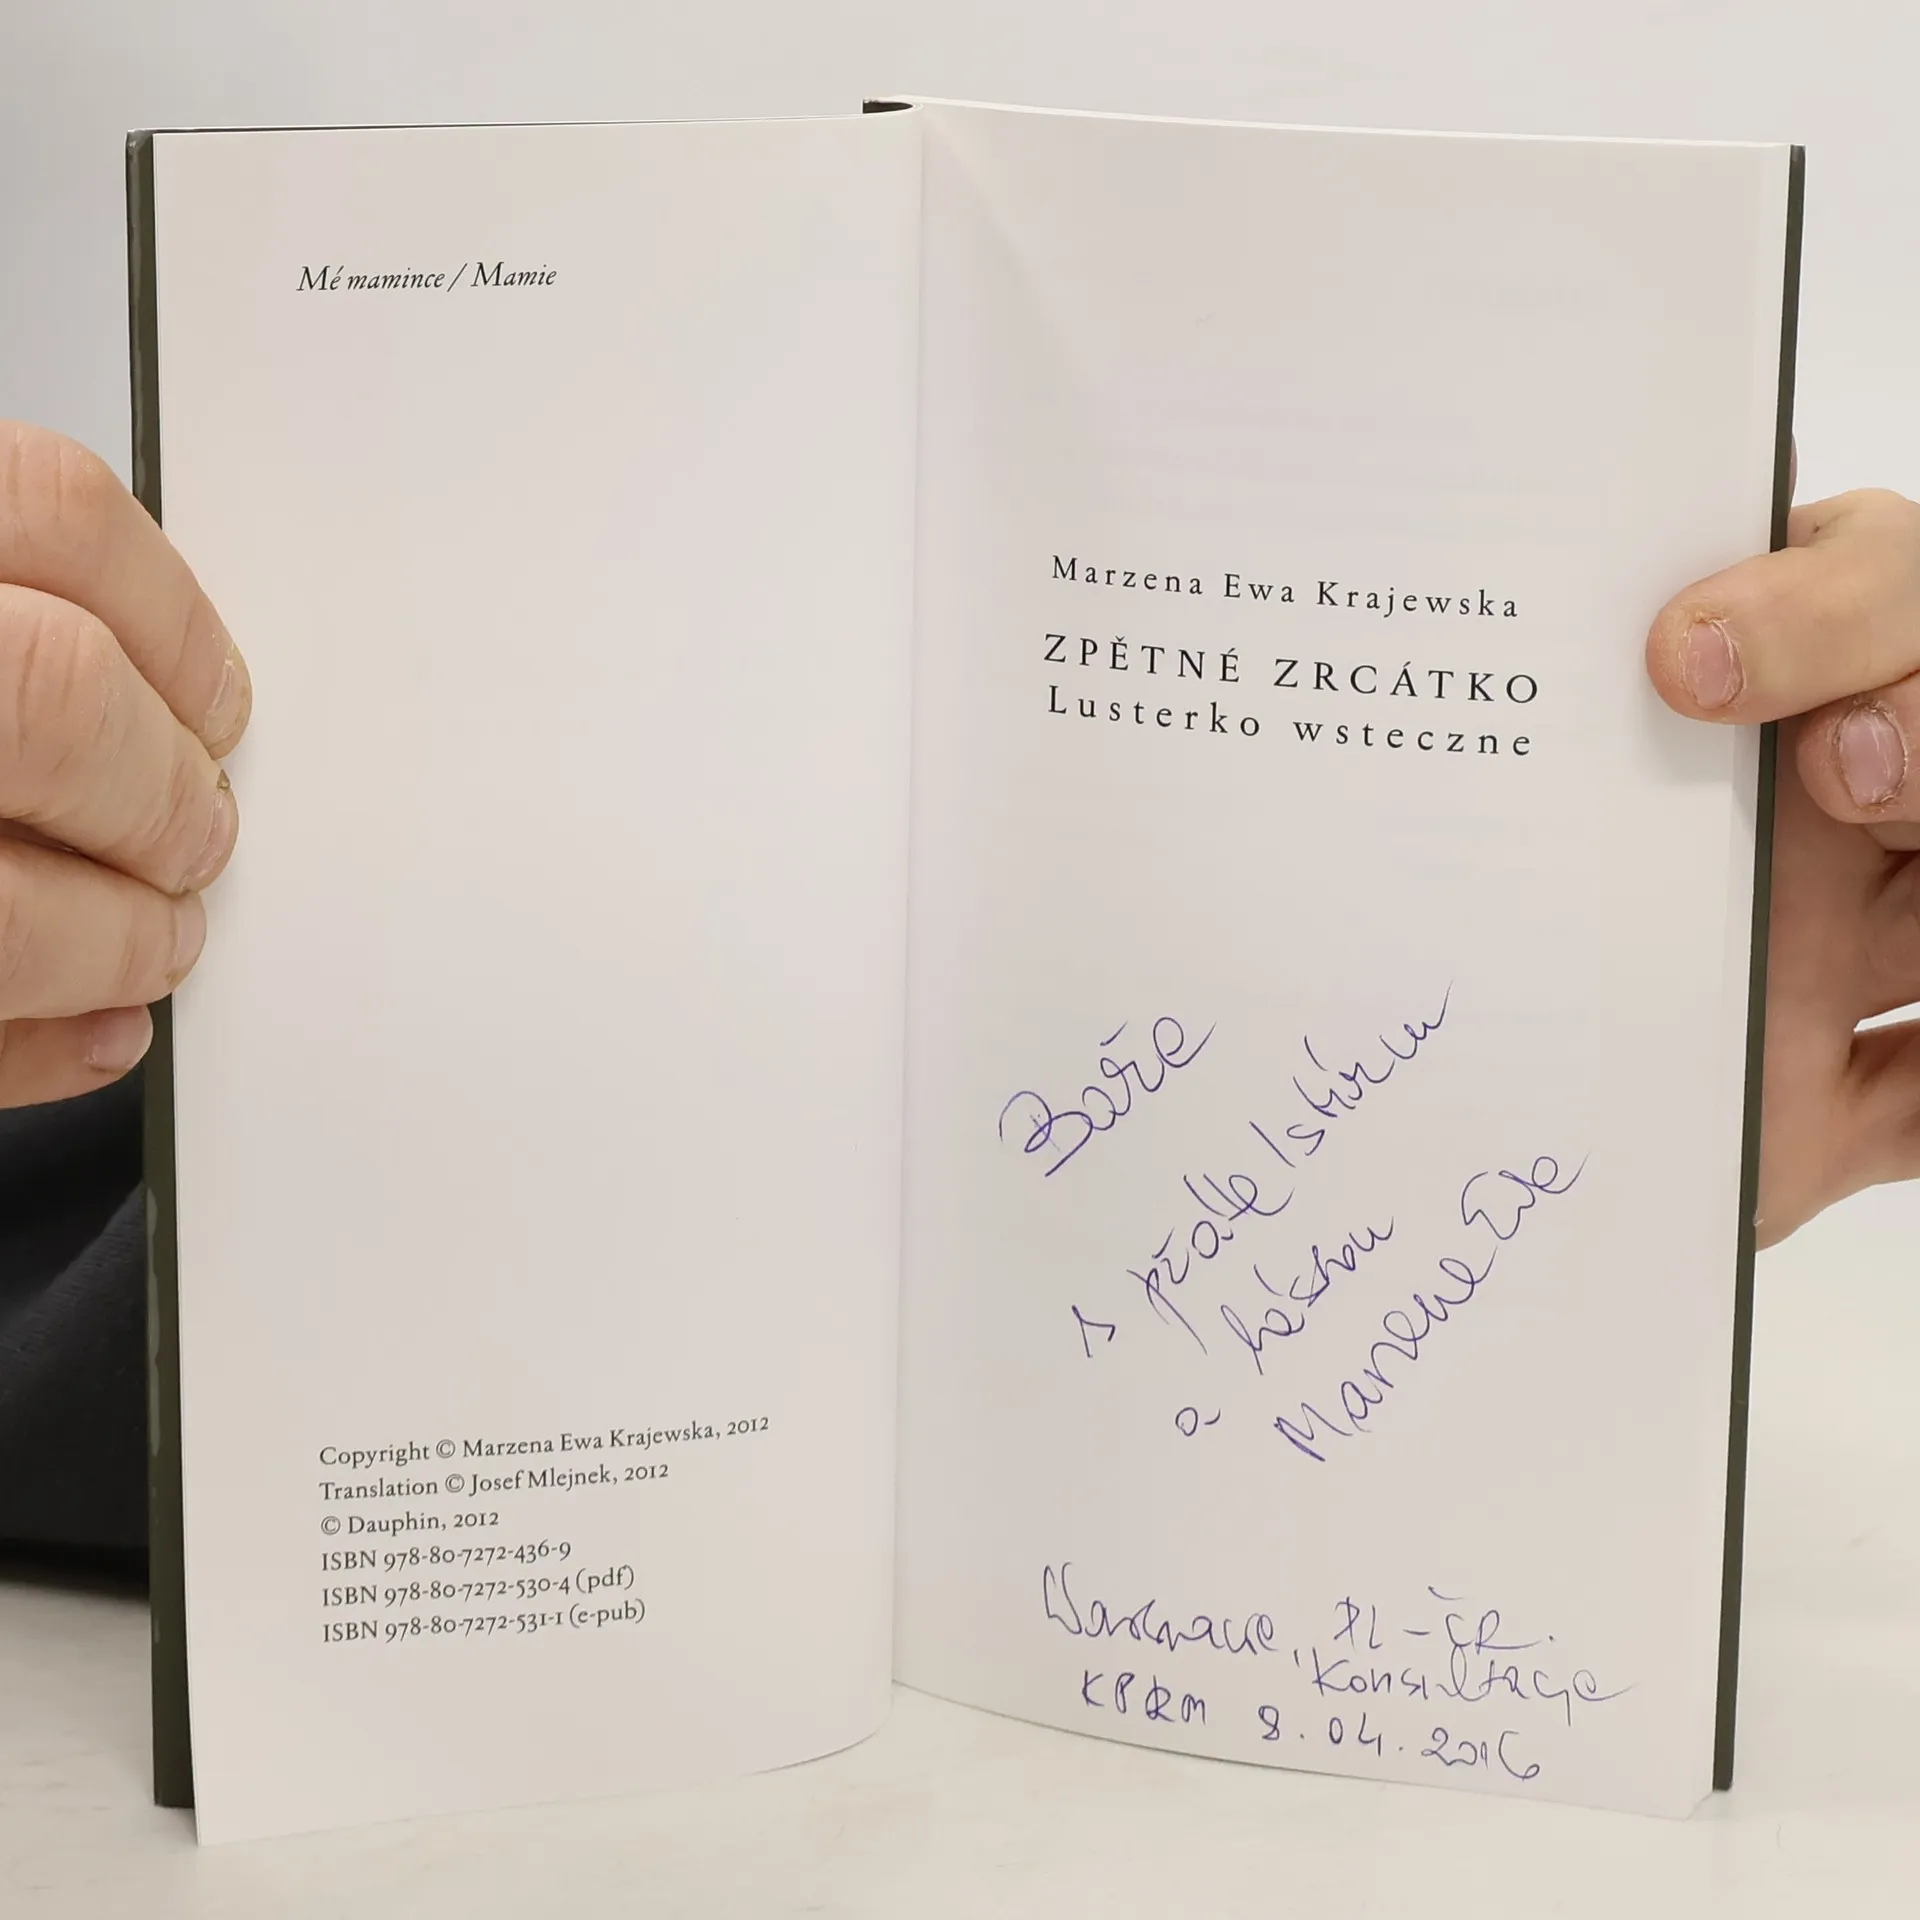 Mé mamince / Mamie
Copyright © Marzena Ewa Krajewska, 2012
Translation © Josef Mlejnek, 2012
© Dauphin, 2012
ISBN 978-80-7272-436-9
ISBN 978-80-7272-530-4 (pdf)
ISBN 978-80-7272-531-1 (e-pub)
Marzena Ewa Krajewska
ZPĚTNÉ ZRCÁTKO
Lusterko wsteczne
Baře
s přátelstvím
a láskou
Marzena Ewa
Warszawa, PL-ČR.
Konsultacje
KPRM 8.04.2016